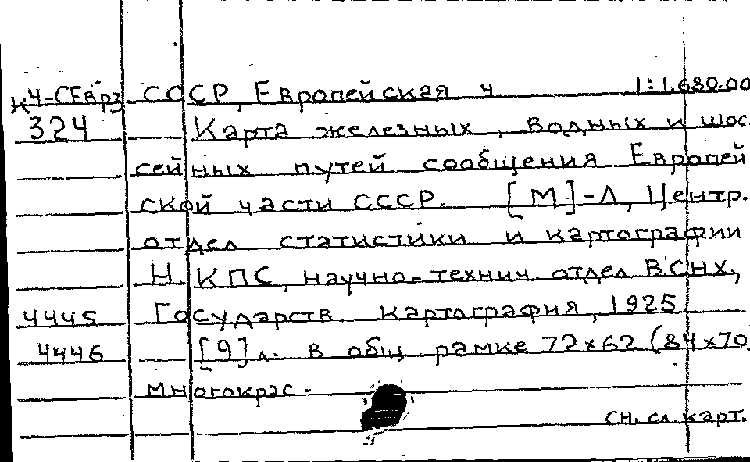 К4-СЕвр3 СССР, Европейская ч 1:1.680.00
324 Карта железных, водных и шос
сейных путей сообщения Европей
ской части СССР. [М]-Л, Центр.
отдел статистики и картографии
Н.КПС, научно-технич. отдел ВСНХ,
4445 Государств. картография, 1925
4446 [9]л. в общ. рамке 72х62 (84х70
многокрас.
сн. сл. карт.